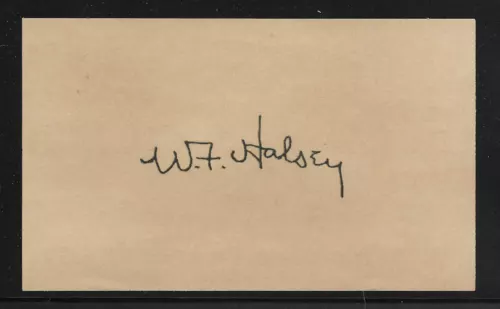 W.F. Halsey